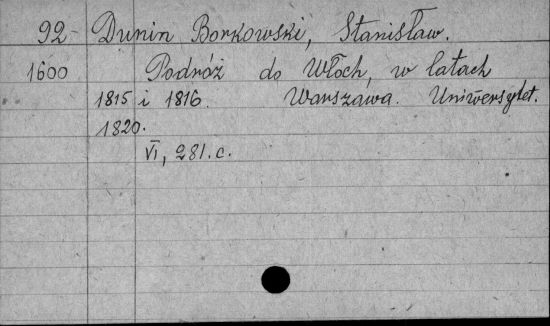 92- Dunin Borkowski, Stanisław.
1600 Podróż do Włoch, w latach
1815 i 1816. Warszawa. Uniwersytet.
1820.
VI, 281. c.